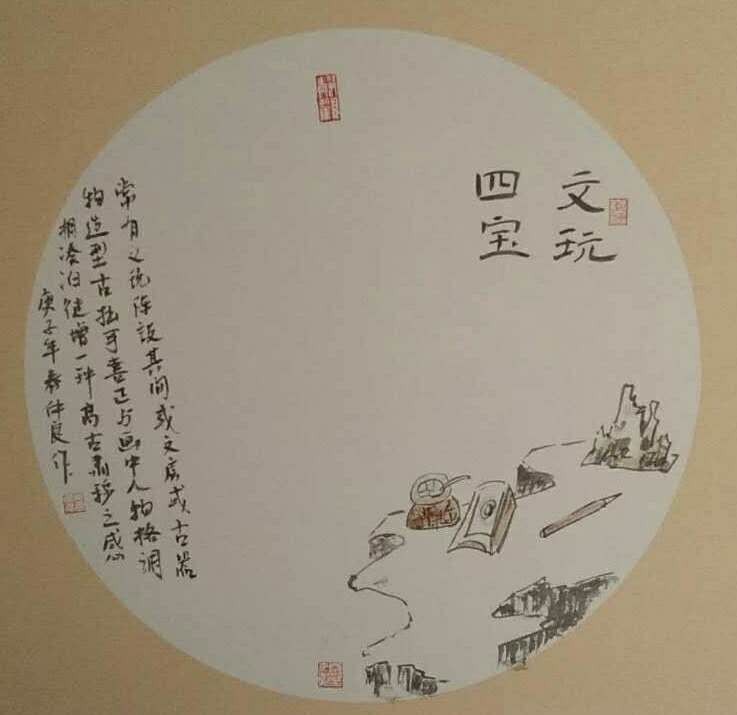 文玩
四宝
常有文玩陈设其间或文房或古器
物造型古拙可喜正与画中人物格调
相凑泊徒增一种高古肃穆之感
庚子年春仲良作